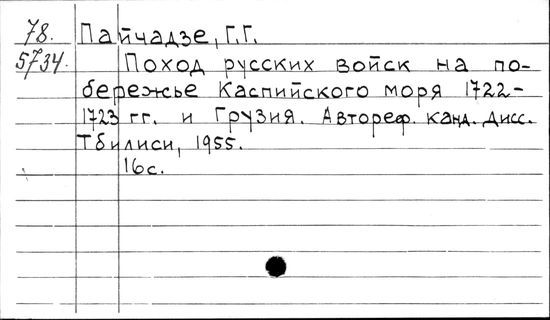 78. Пайчадзе, Г.Г.
5734. Поход русских войск на по-
бережье Каспийского моря 1722-
1723 гг. и Грузия. Автореф. канд. дисс.
Тбилиси, 1955.
16с.